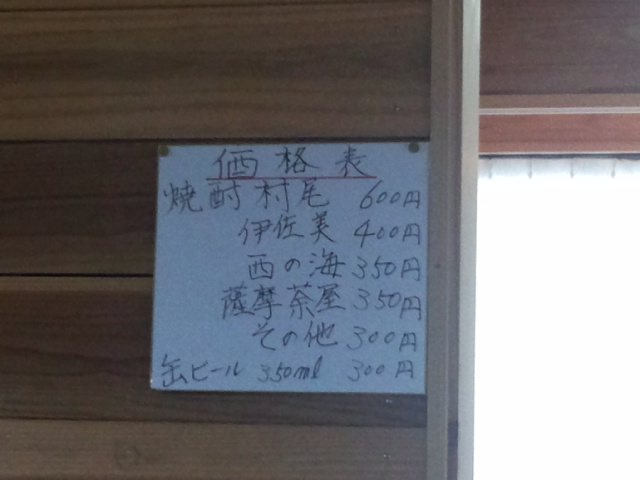 価格表
焼酎 村尾 600円
伊佐美 400円
西の海 350円
薩摩茶屋 350円
その他 300円
缶ビール 350ml 300円